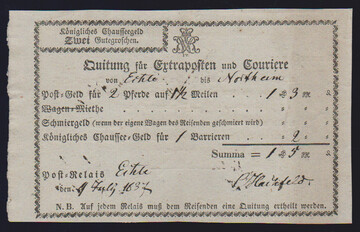 Königliches Chausseegeld
Zwei Gutegroschen.
Quitung für Extraposten und Couriere
von Echte bis Northeim
Post-Geld für 2 Pferde auf 1½ Meilen 1 . 3 .
Wagen-Miethe
Schmiergeld (wenn der eigene Wagen des Reisenden geschmiert wird)
Königliches Chaussee-Geld für 1 Barrieren 2
Summa = 1 . 5
Post-Relais Echte
den 9 July
N. B. Auf jedem Relais muß dem Reisenden eine Quitung ertheilt werden.